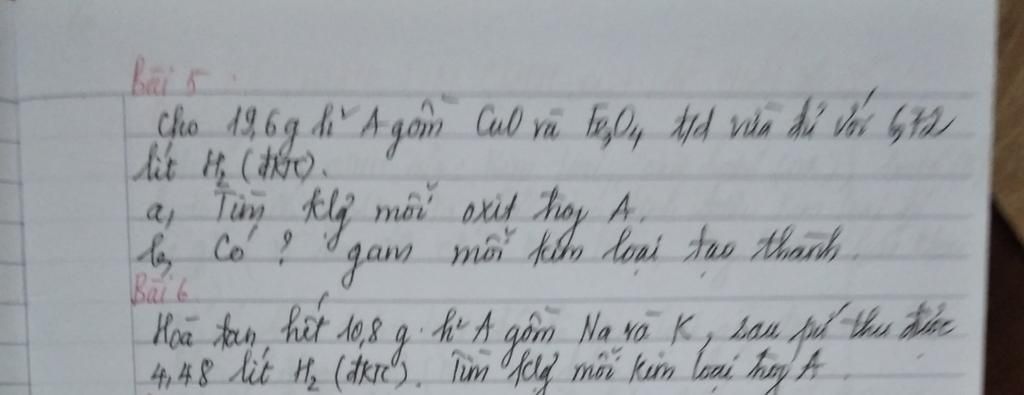 Bài 5
Cho 19,6g h² A gồm CuO và Fe₃O₄ t/d vừa đủ với 6,72
lít H₂ (đktc).
a, Tìm klg mỗi oxit trong A.
b, Có ? gam mỗi kim loại tạo thành.
Bài 6
Hoà tan hết 10,8 g h² A gồm Na và K, sau pứ thu được
4,48 lít H₂ (đktc). Tìm klg mỗi kim loại trong A.